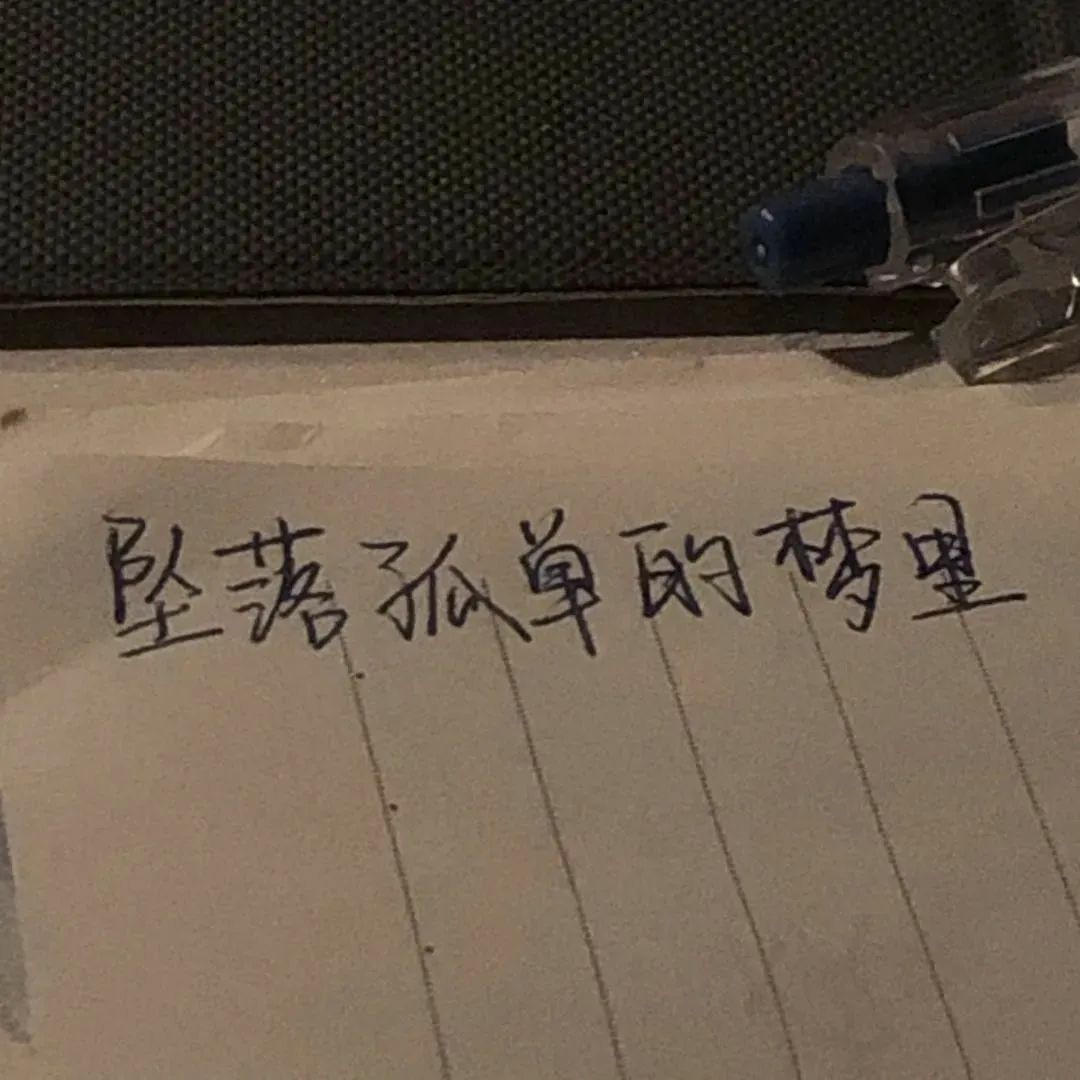 坠落孤单的梦里